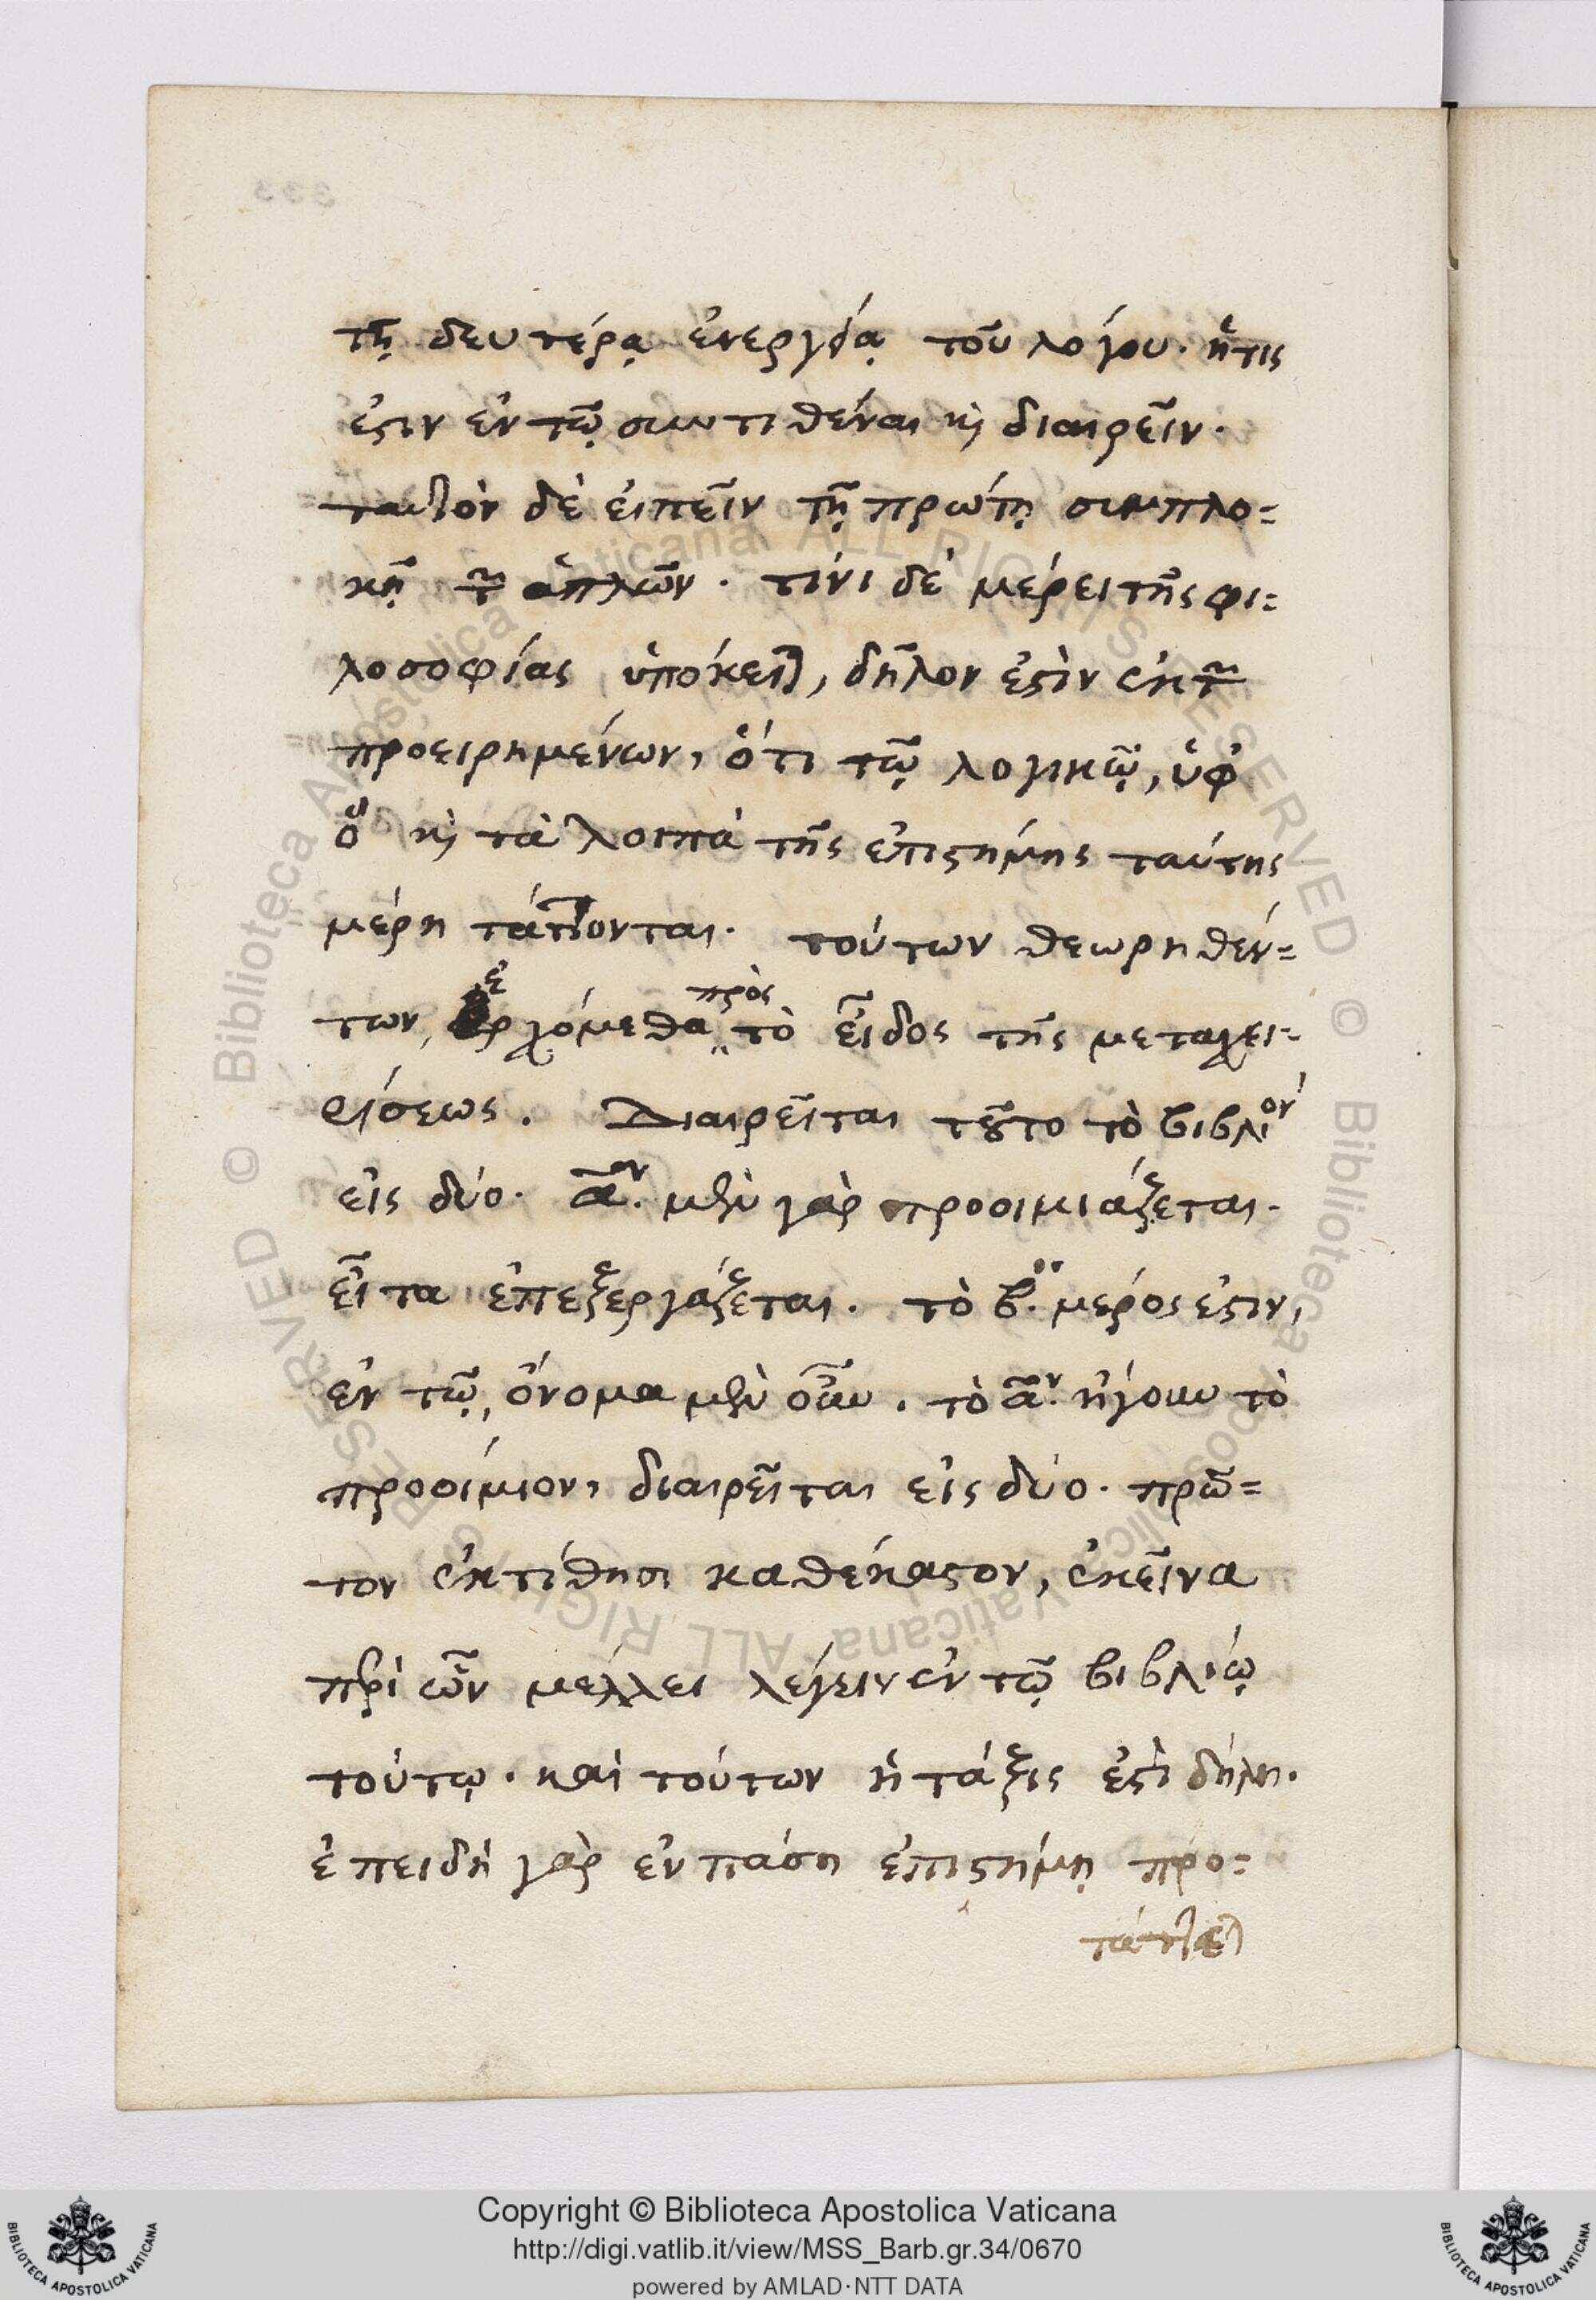 τῇ δευτέρᾳ ἐνεργείᾳ τοῦ λόγου· ἥτις
ἐστιν ἐν τῷ συντιθέναι καὶ διαιρεῖν·
ταυτὸν δὲ εἰπεῖν τῇ πρώτῃ συμπλο=
κῇ τῶν ἁπλῶν. τίνι δὲ μέρει τῆς φι=
λοσοφίας ὑπόκειται, δῆλον ἐστὶν ἐκ τῶν
προειρημένων, ὅτι τῷ λογικῷ, ὑφ'
ὃ καὶ τὰ λοιπὰ τῆς ἐπιστήμης ταύτης
μέρη τάττονται. τούτων θεωρηθέν=
των, ἐρχόμεθα πρὸς τὸ εἶδος τῆς μεταχει-
ρίσεως. Διαιρεῖται τοῦτο τὸ βιβλίον
εἰς δύο. αον. μὲν γὰρ προοιμιάζεται.
εἶτα ἐπεξεργάζεται. τὸ β. μέρος ἐστιν,
ἐν τῷ, ὄνομα μὲν οὖν. τὸ αον. ἤγουν τὸ
προοίμιον, διαιρεῖται εἰς δύο. πρῶ=
τον ἐκτίθησι καθέκαστον, ἐκεῖνα
περὶ ὧν μέλλει λέγειν ἐν τῷ βιβλίῳ
τούτῳ. καὶ τούτων ἡ τάξις ἐστὶ δήλη.
ἐπειδὴ γὰρ ἐν πάσῃ ἐπιστήμῃ προ=
τάττεται
Copyright © Biblioteca Apostolica Vaticana
http://digi.vatlib.it/view/MSS_Barb.gr.34/0670
powered by AMLAD·NTT DATA